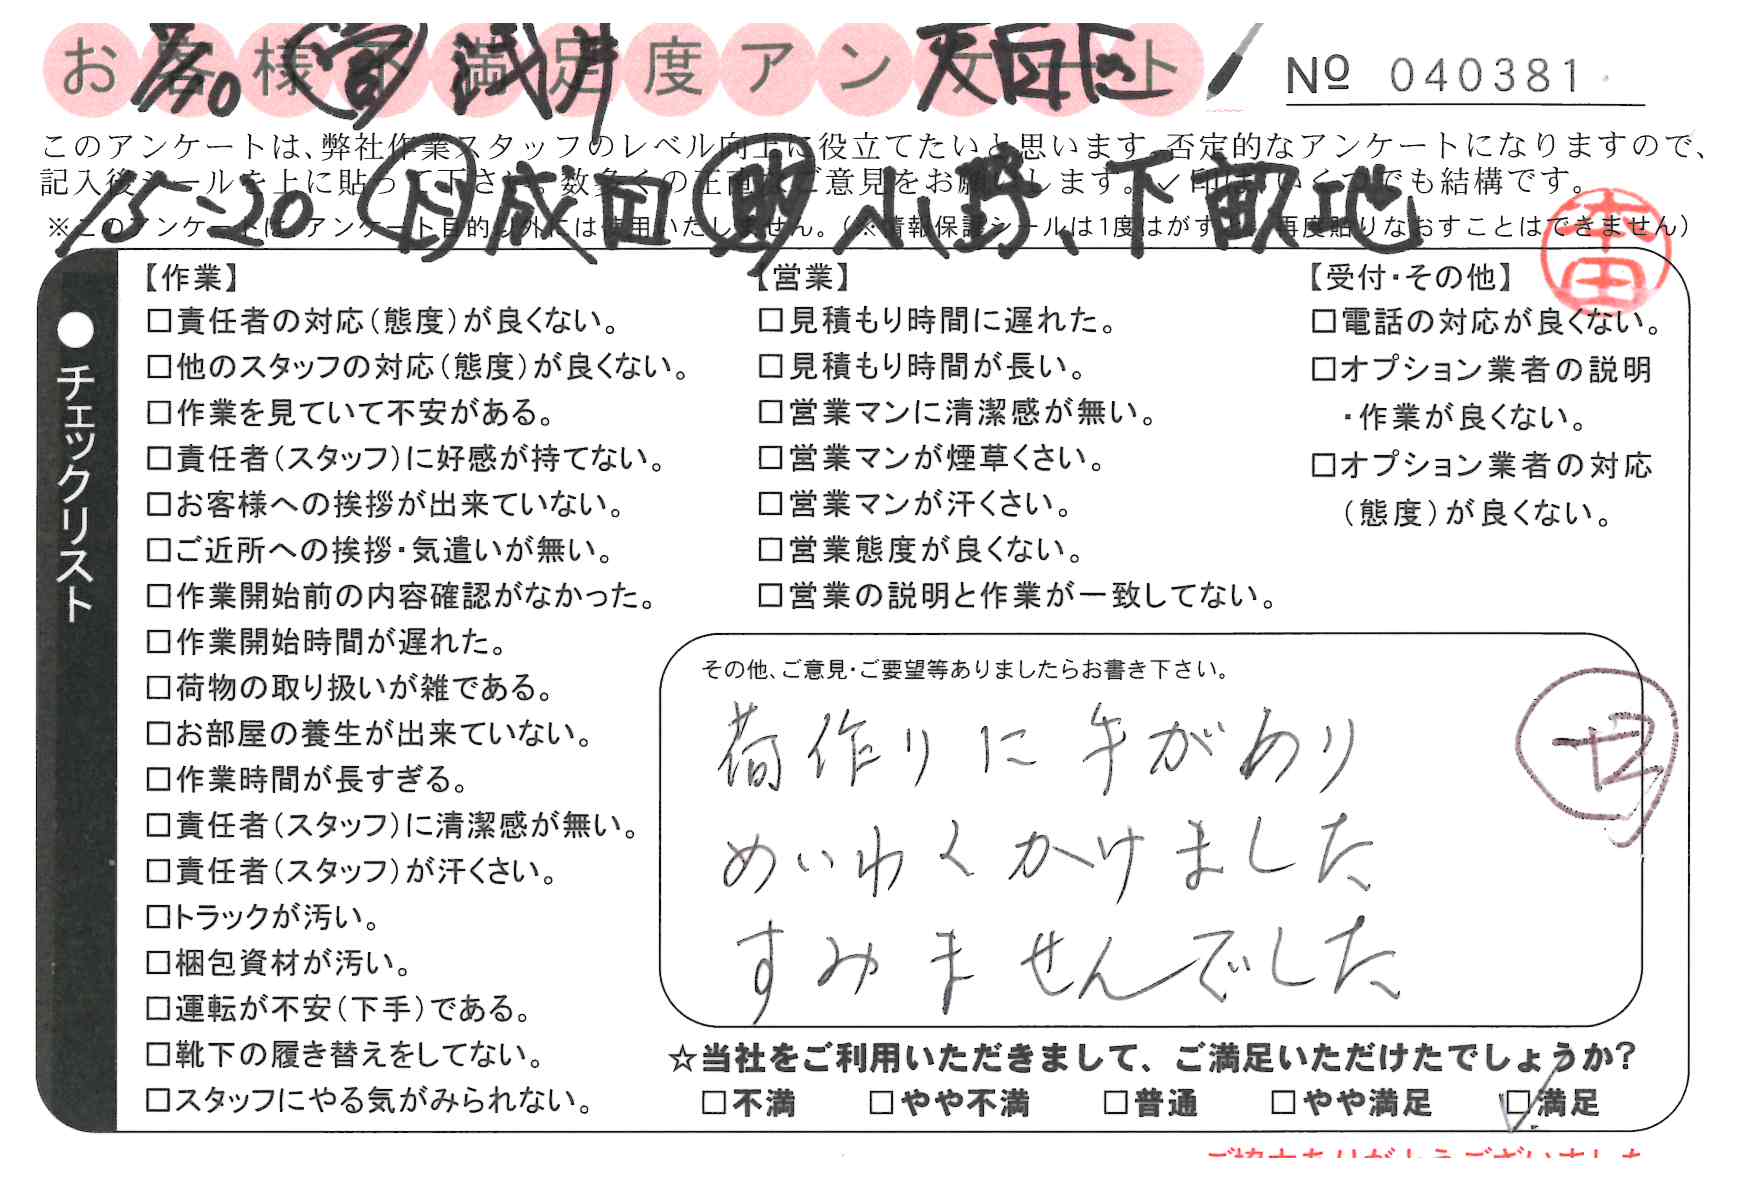 お客様不満足度アンケート
7/30 営 浅井 天白区
Nº 040381
このアンケートは、弊社作業スタッフのレベル向上に役立てたいと思います。否定的なアンケートになりますので、
記入後シールを上に貼って下さい。数多くの正直なご意見をお願いします。✓印は、いくつでも結構です。
15:20 成田 助 小野、下畝地
※このアンケートは、アンケート目的以外には使用いたしません。(※情報保護シールは1度はがすと、再度貼りなおすことはできません)
本田
●チェックリスト
【作業】
□責任者の対応(態度)が良くない。
□他のスタッフの対応(態度)が良くない。
□作業を見ていて不安がある。
□責任者(スタッフ)に好感が持てない。
□お客様への挨拶が出来ていない。
□ご近所への挨拶・気遣いが無い。
□作業開始前の内容確認がなかった。
□作業開始時間が遅れた。
□荷物の取り扱いが雑である。
□お部屋の養生が出来ていない。
□作業時間が長すぎる。
□責任者(スタッフ)に清潔感が無い。
□責任者(スタッフ)が汗くさい。
□トラックが汚い。
□梱包資材が汚い。
□運転が不安(下手)である。
□靴下の履き替えをしてない。
□スタッフにやる気がみられない。
【営業】
□見積もり時間に遅れた。
□見積もり時間が長い。
□営業マンに清潔感が無い。
□営業マンが煙草くさい。
□営業マンが汗くさい。
□営業態度が良くない。
□営業の説明と作業が一致してない。
【受付・その他】
□電話の対応が良くない。
□オプション業者の説明
・作業が良くない。
□オプション業者の対応
(態度)が良くない。
その他、ご意見・ご要望等ありましたらお書き下さい。
荷作りに手がかり
めいわくかけました
すみませんでした
☆当社をご利用いただきまして、ご満足いただけたでしょうか?
□不満 □やや不満 □普通 □やや満足 ☑満足
ご協力ありがとうございました